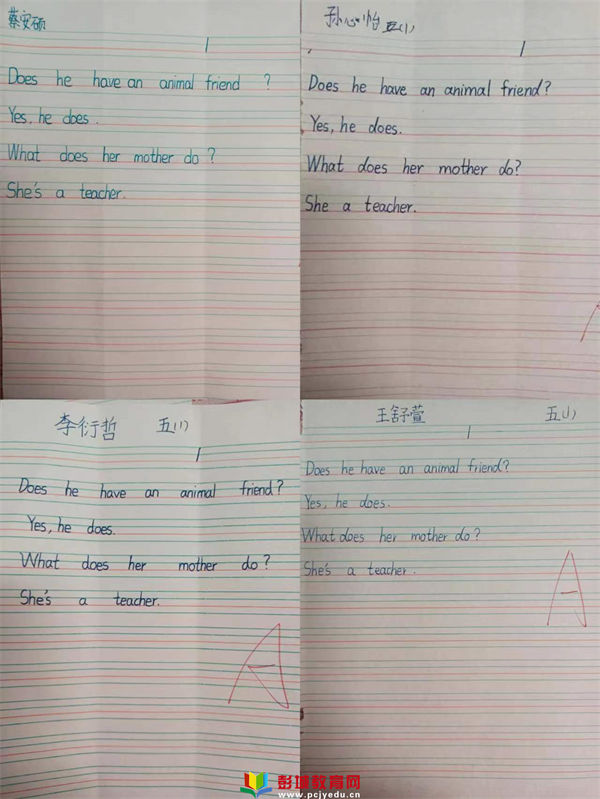 蔡安硕
1
Does he have an animal friend ?
Yes, he does.
What does her mother do ?
She's a teacher.
孙心怡 五(1)
1
Does he have an animal friend?
Yes, he does.
What does her mother do?
She a teacher.
李衍哲 五(1)
1
Does he have an animal friend?
Yes, he does.
What does her mother do?
She's a teacher.
A
王舒萱 五(1)
1
Does he have an animal friend?
Yes, he does.
What does her mother do?
She's a teacher.
A
彭坤教育网
www.pcjyedu.cn